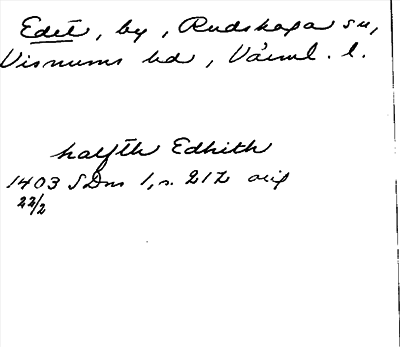 Edit, by, Rudskoga sn,
Visnums hd, Värml. l.
halfth Edhith
1403 SDns 1, s. 212 orig
22/2